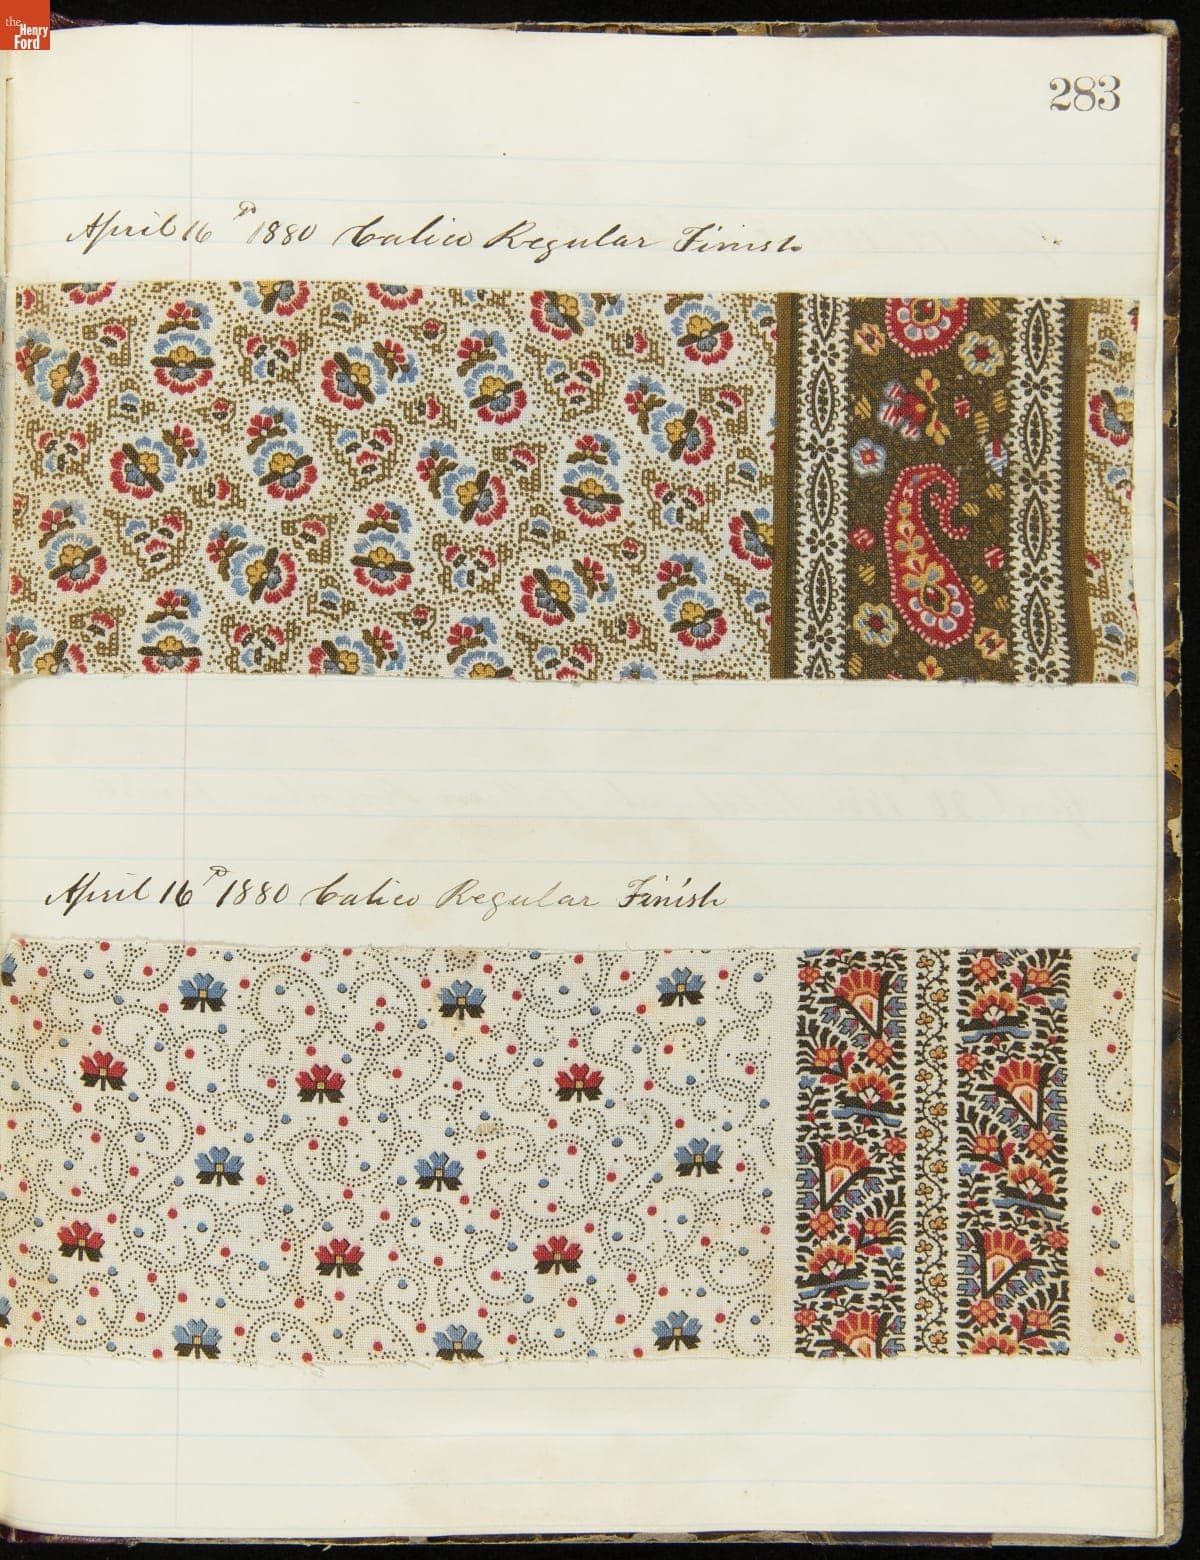 the
Henry
Ford
283
April 16th 1880 Calico Regular Finish
April 16th 1880 Calico Regular Finish